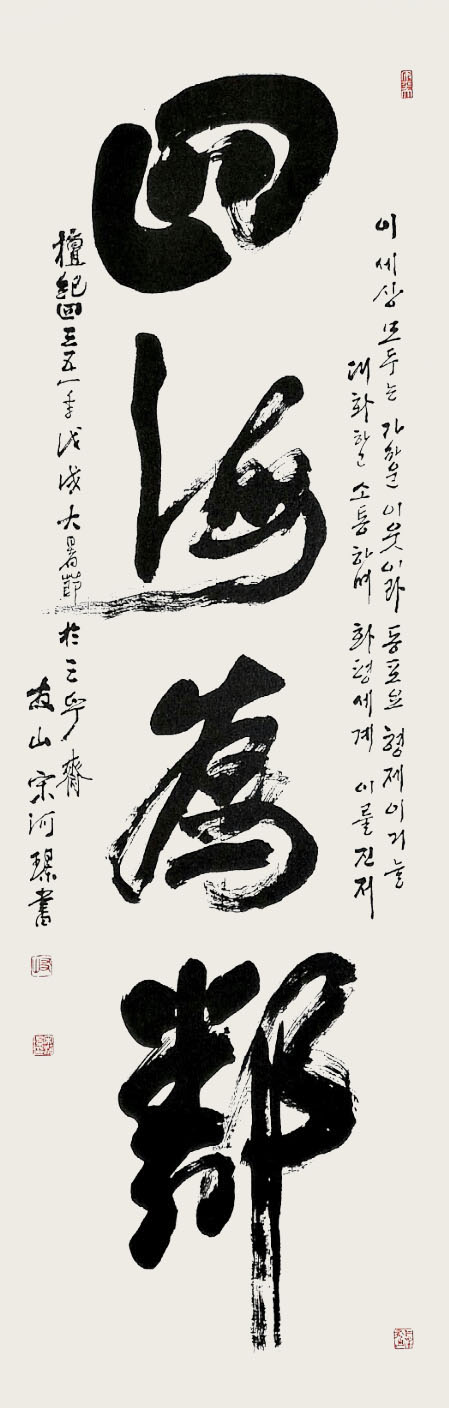 이 세상 모두는 가까운 이웃이라 동포요 형제이거늘
대화하고 소통하며 화평세계 이룰진저
四海為鄰
檀紀四三五一年戊戌大暑節 於三 齋
友山宋河璟書